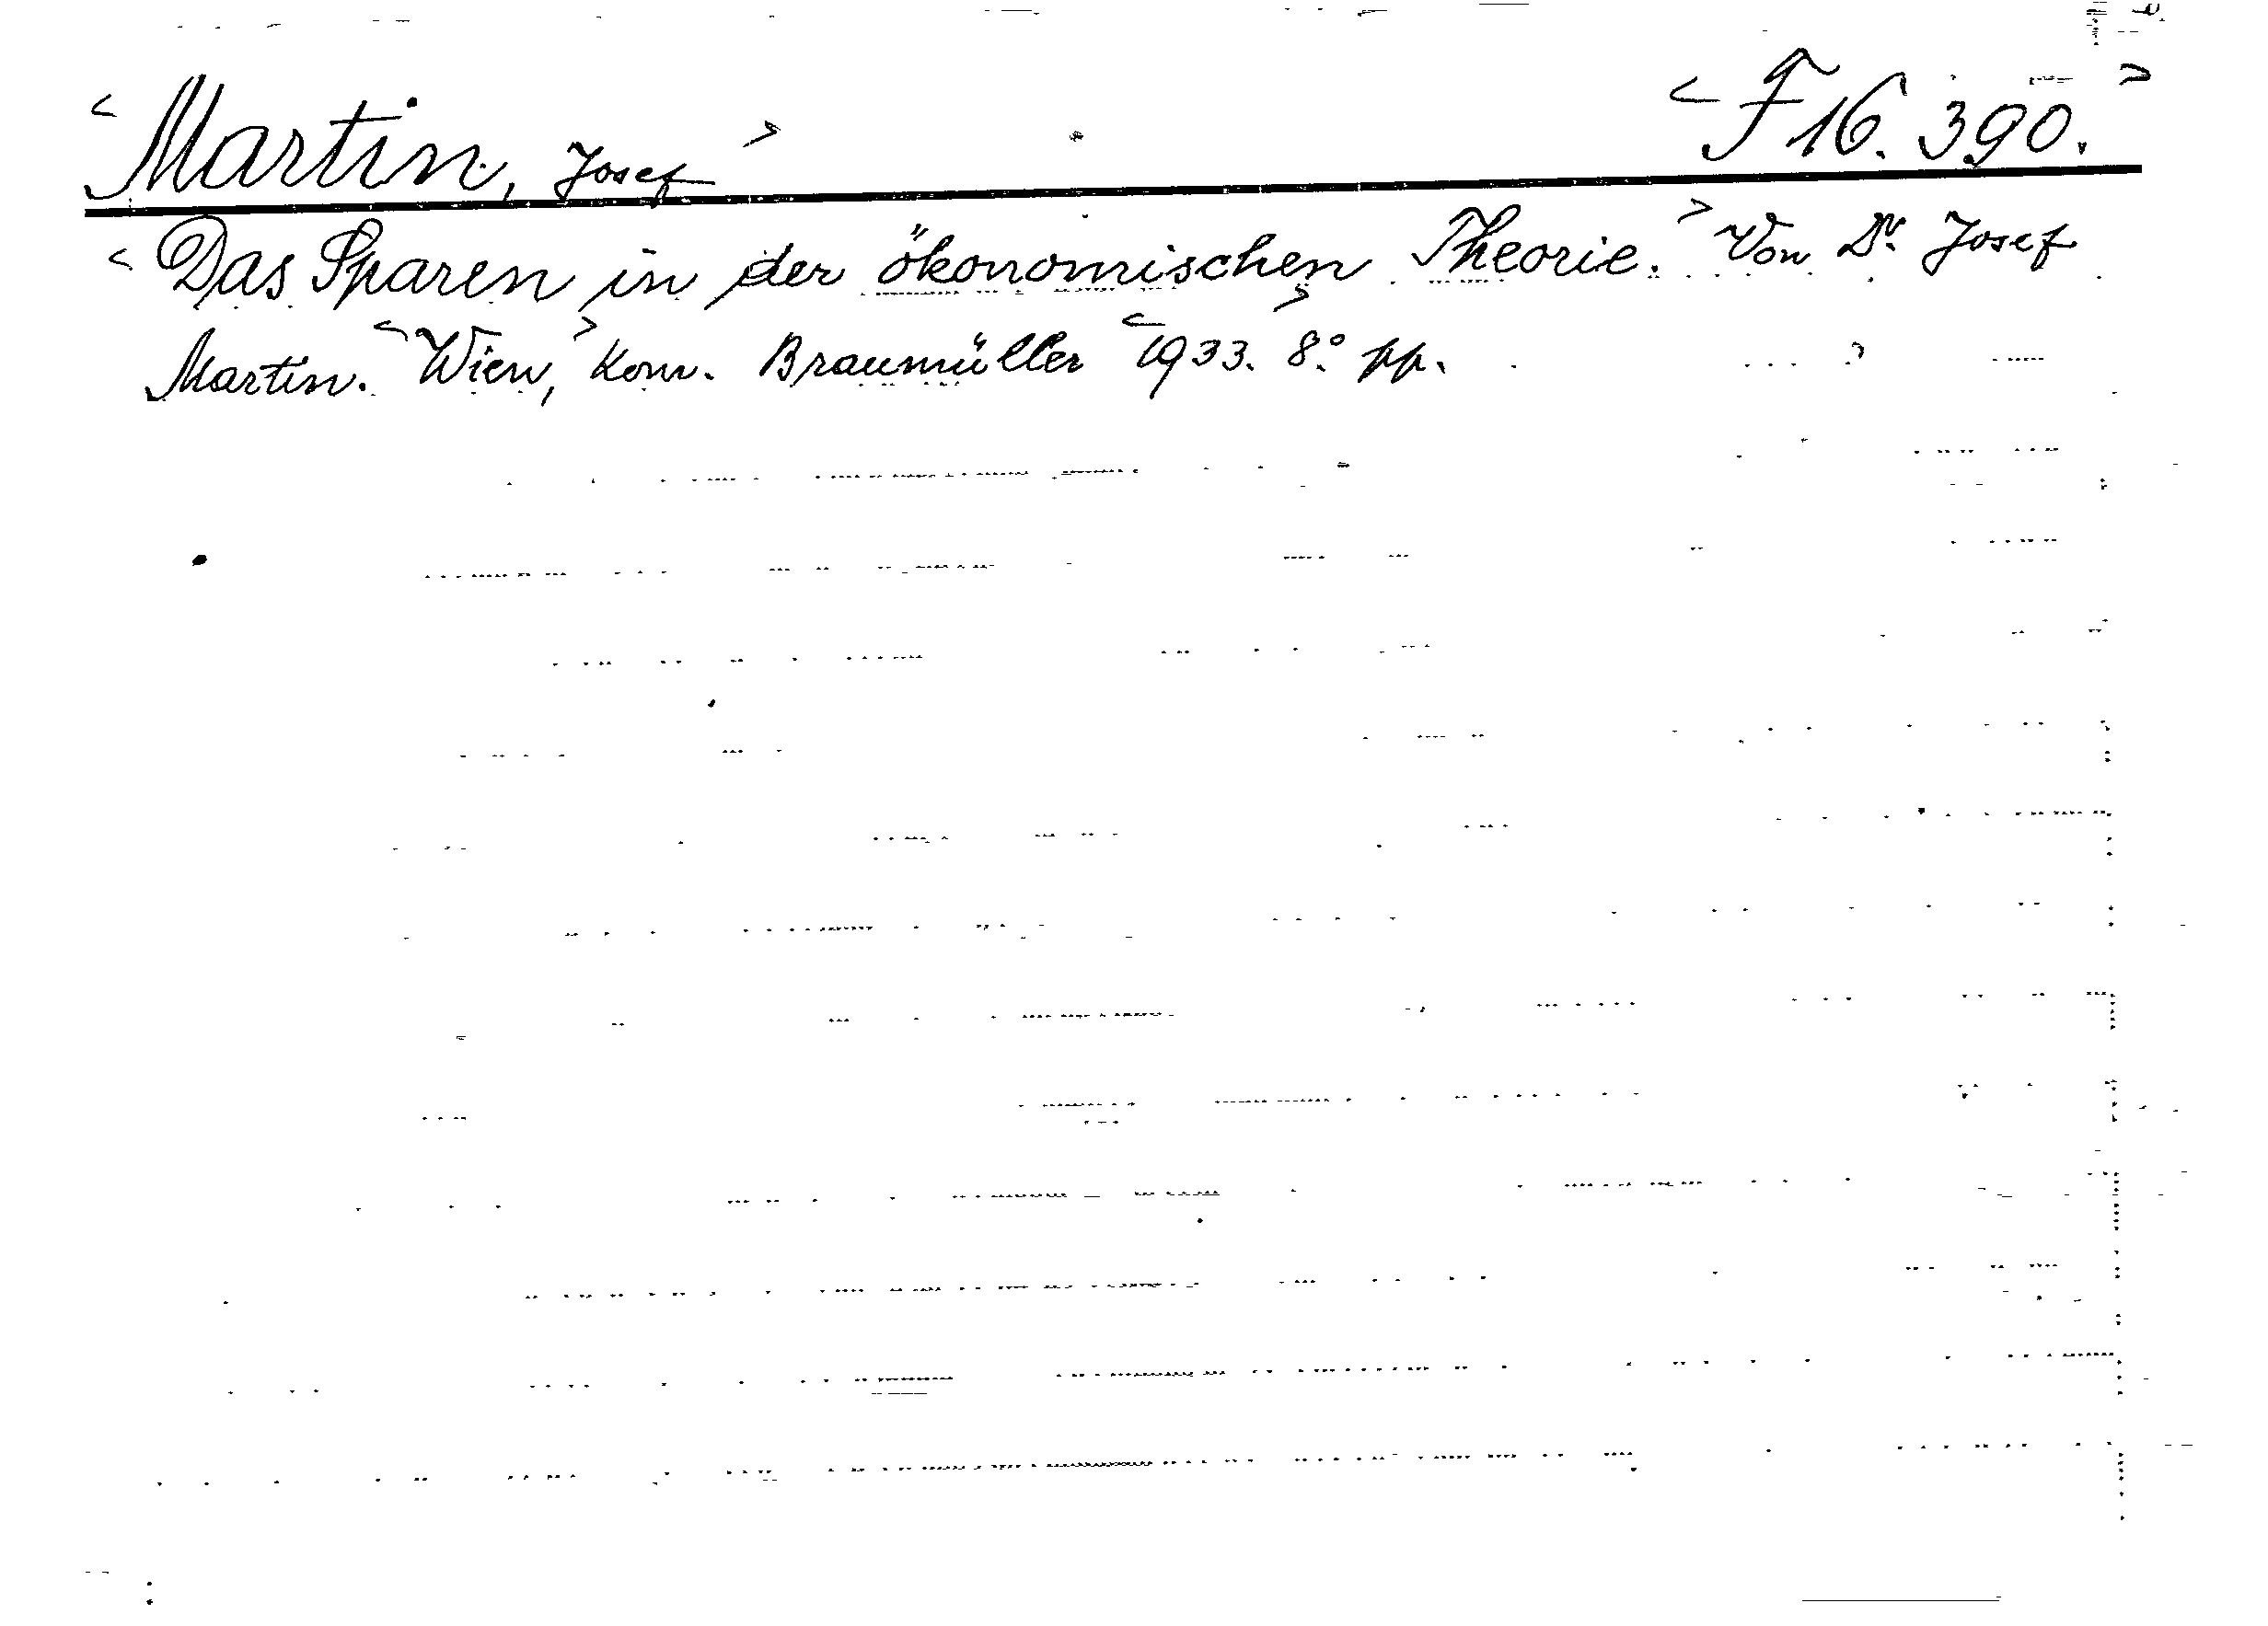 <Martin, Josef> <F 16.390.>
<Das Sparen in der ökonomischen Theorie.> Von Dr. Josef
Martin. <Wien,> Kom. Braumüller <1933.> 8.° pp.